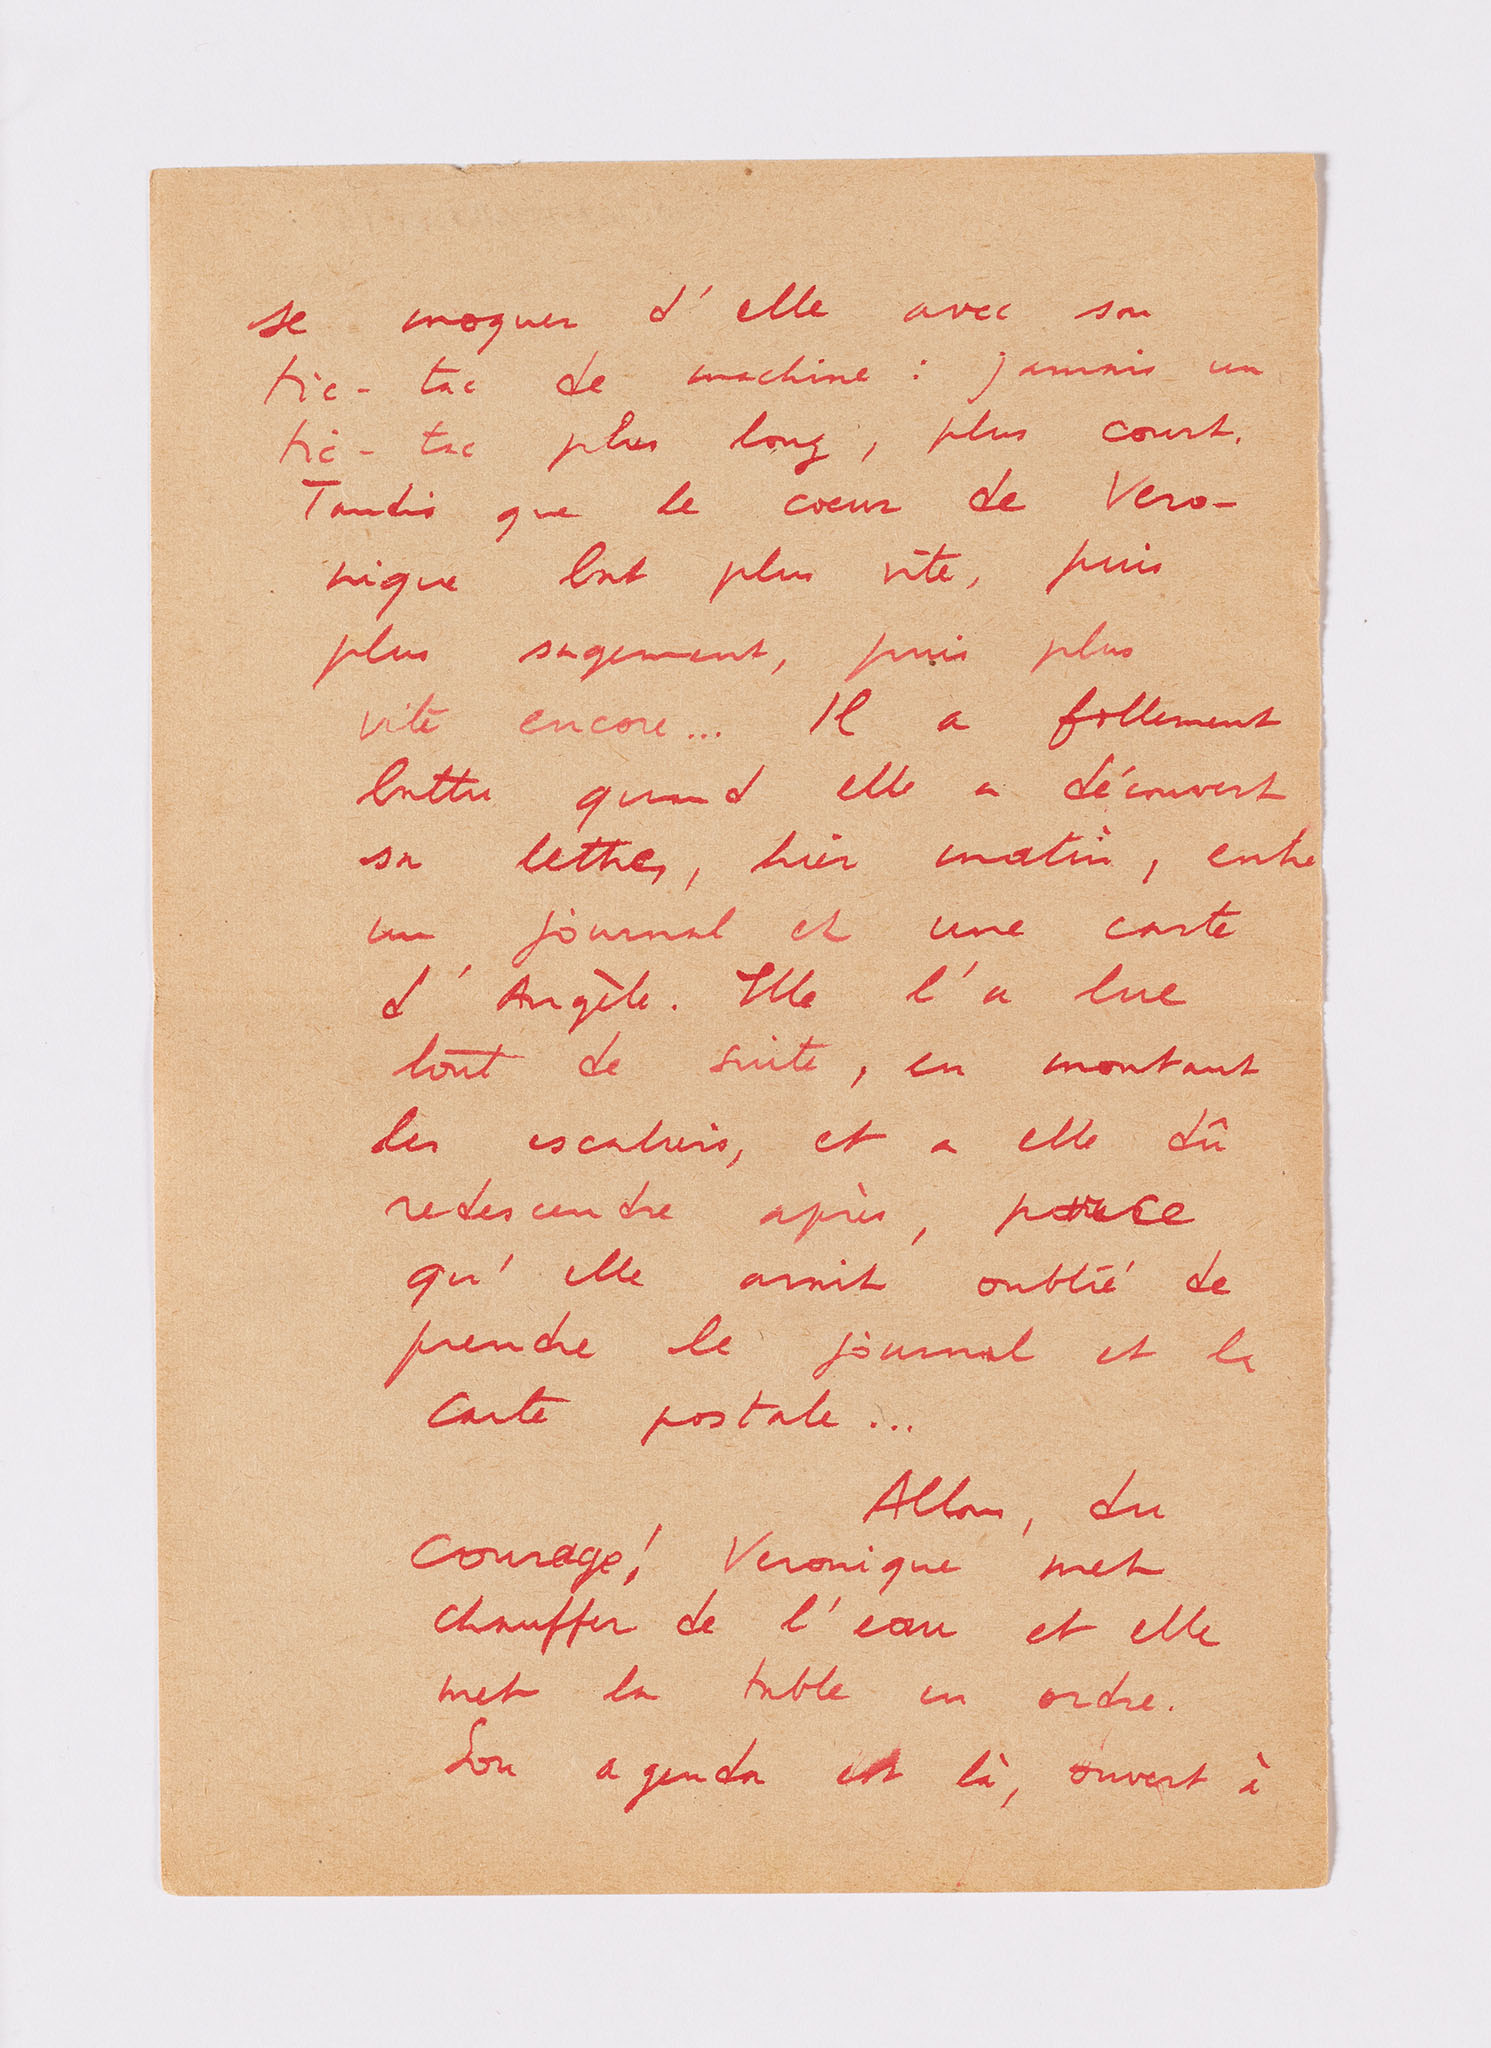 se moquer d'elle avec son
tic-tac de machine : jamais un
tic-tac plus long, plus court.
Tandis que le coeur de Vero-
nique bat plus vite, puis
plus sagement, puis plus
vite encore... Il a follement
battu quand elle a découvert
sa lettre, hier matin, entre
un journal et une carte
d'Angèle. Elle l'a lue
tout de suite, en montant
les escaliers, et a elle dû
redescendre après, parce
qu'elle avait oublié de
prendre le journal et la
carte postale...
Allons, du
courage! Veronique met
chauffer de l'eau et elle
met la table en ordre.
Son agenda est là, ouvert à